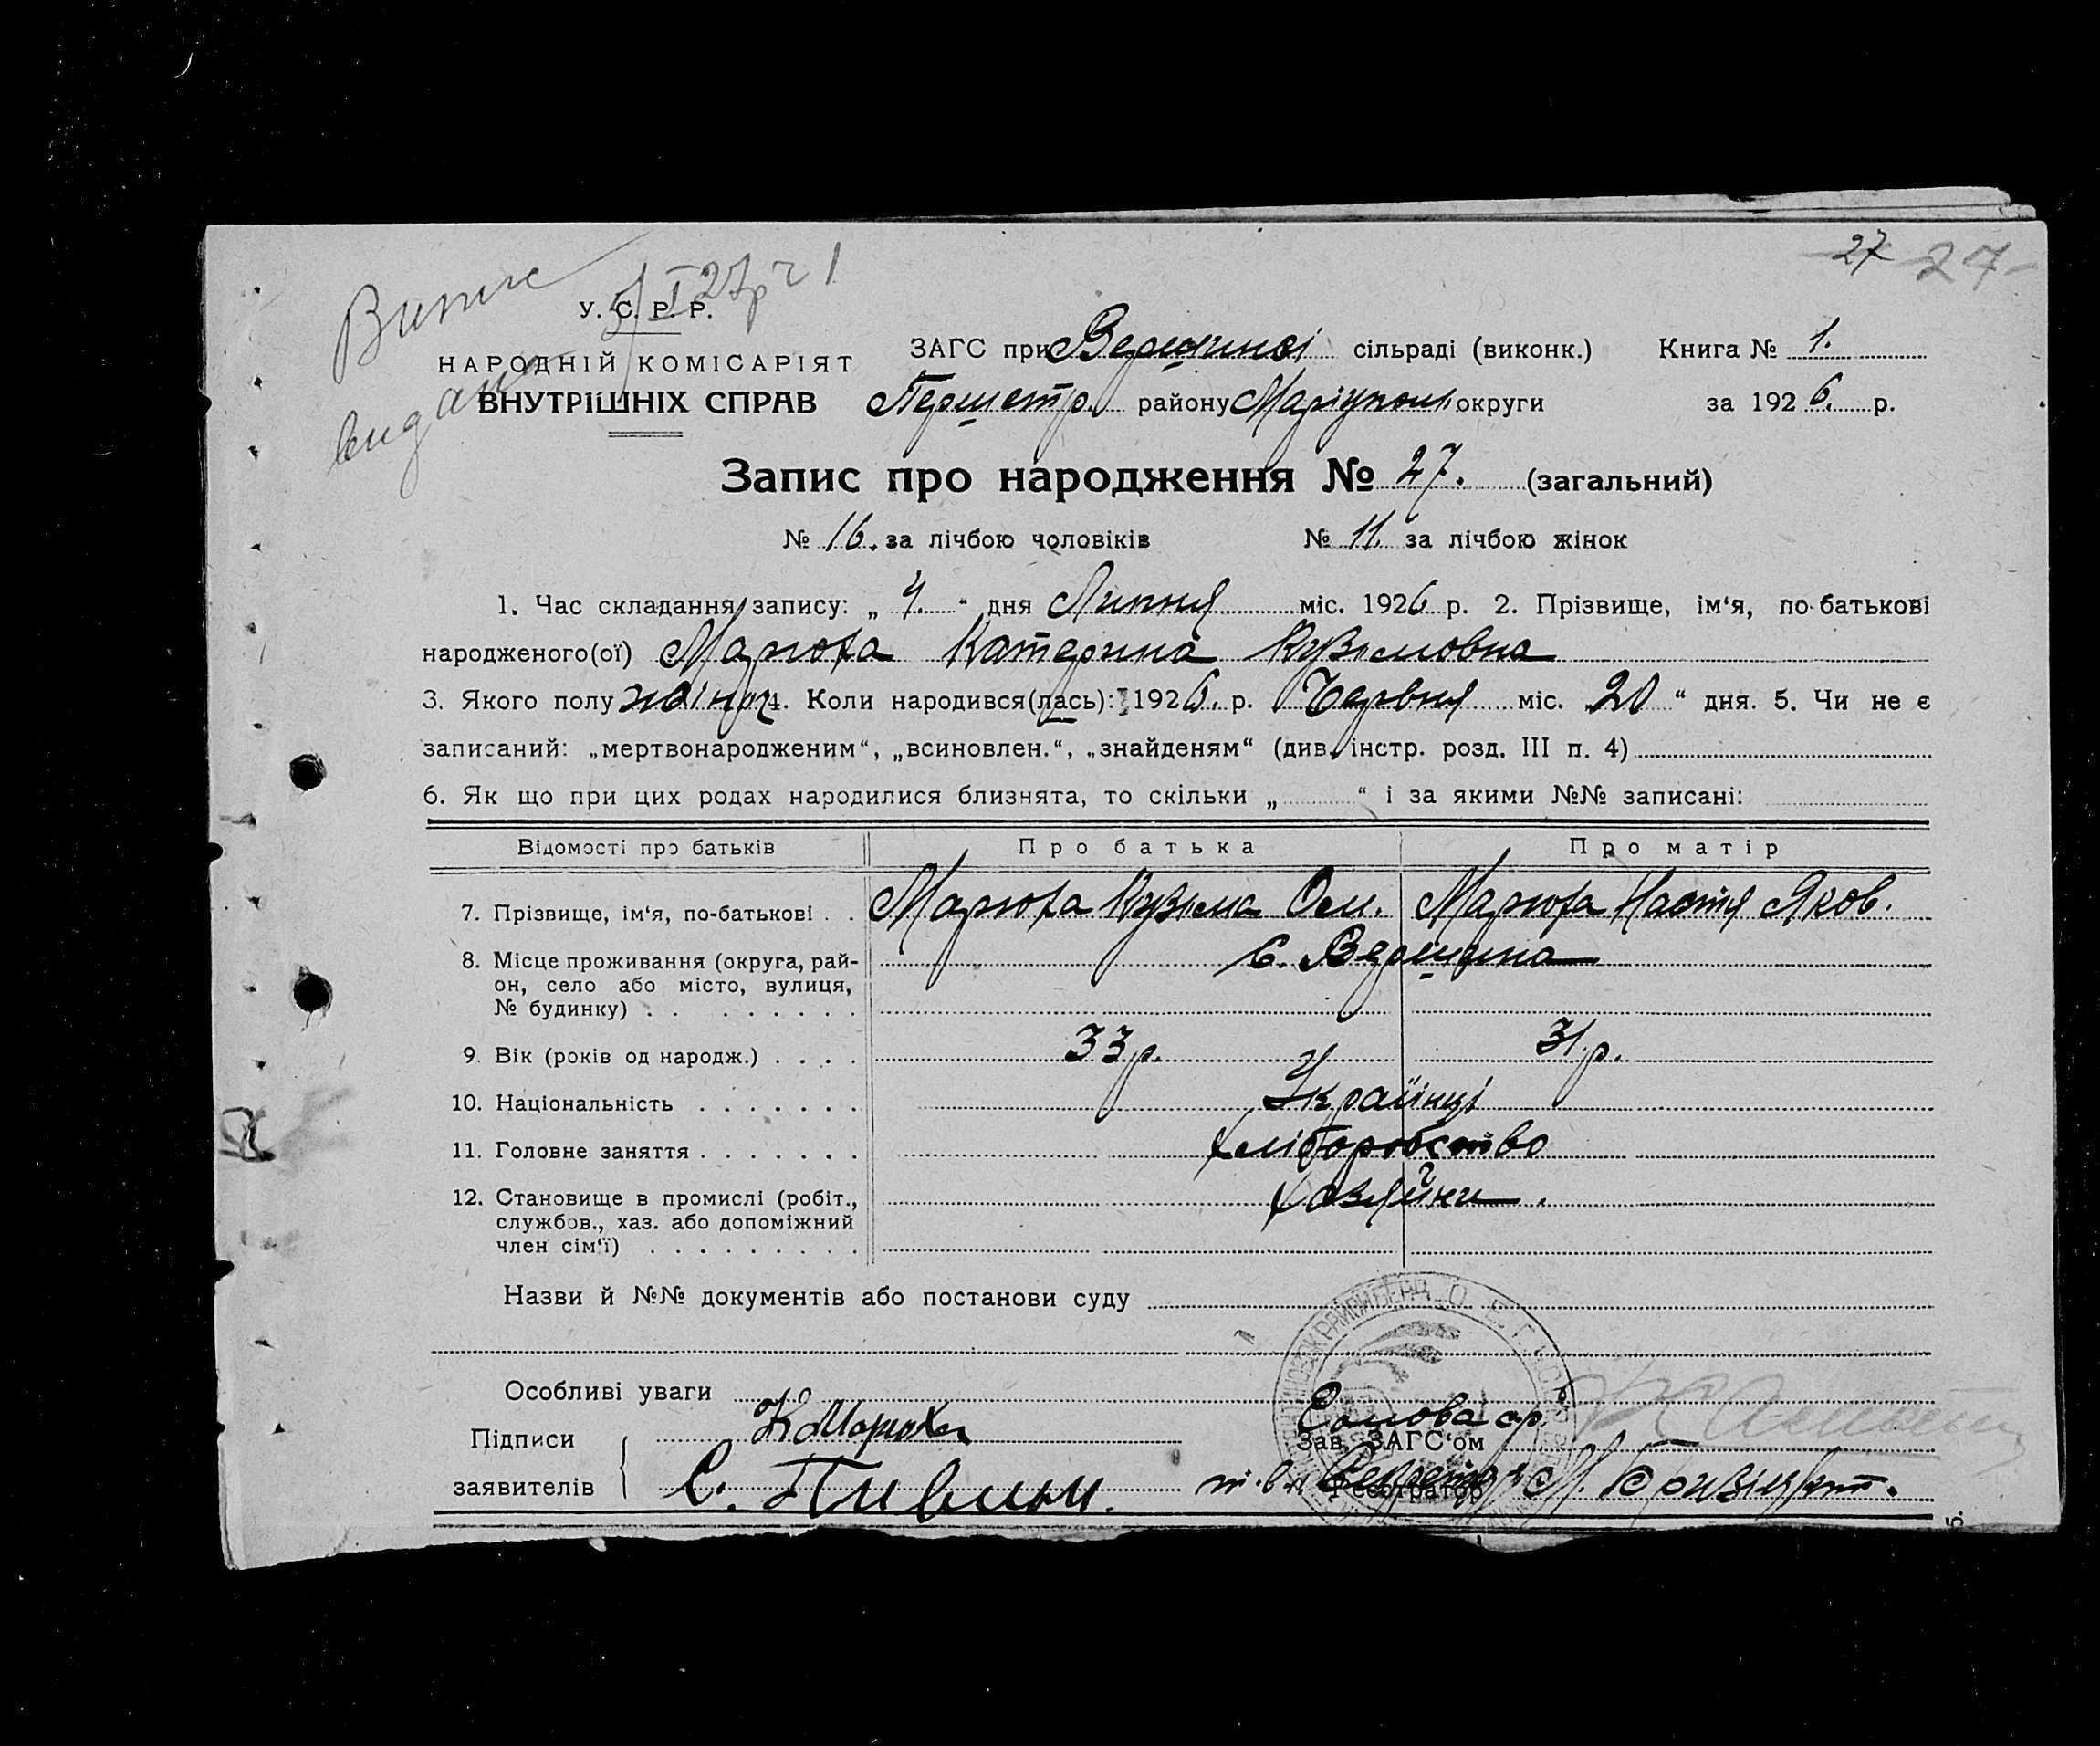 27 27
Випис 5/I 27р ч 1
видано
У. С. Р. Р.
НАРОДНІЙ КОМІСАРІЯТ
ВНУТРІШНІХ СПРАВ
ЗАГС при Вершиної сільраді (виконк.) Книга № 1.
Першетр. району Маріупол. округи за 1926. р.
Запис про народження № 27. (загальний)
№ 16. за лічбою чоловіків № 11. за лічбою жінок
1. Час складання запису: „ 4. “ дня Липня міс. 1926 р. 2. Прізвище, ім‘я, по-батькові
народженого(ої) Марюха Катерина Кузьмовна
3. Якого полу жіноч. 4. Коли народився(лась): 1926. р. Червня міс. „20“ дня. 5. Чи не є
записаний: „мертвонародженим“, „всиновлен.“, „знайденям“ (див. інстр. розд. III п. 4)
6. Як що при цих родах народилися близнята, то скільки „ “ і за якими №№ записані:
Відомості про батьків Про батька Про матір
7. Прізвище, ім‘я, по-батькові . . Марюха Кузьма Ом. Марюха Настя Яков.
8. Місце проживання (округа, рай- с. Вершина
он, село або місто, вулиця,
№ будинку) . . . . . . . . .
9. Вік (років од народж.) . . . . 33 р. 31 р.
10. Національність . . . . . . . Українці
11. Головне заняття . . . . . . . Хліборобство
12. Становище в промислі (робіт., Хазяйки.
службов., хаз. або допоміжний
член сім‘ї) . . . . . . . . .
Назви й №№ документів або постанови суду
Особливі уваги
Підписи К Марюха Голова ср.
Зав. ЗАГС‘ом
заявителів С. Секретар М.
Реєстратор